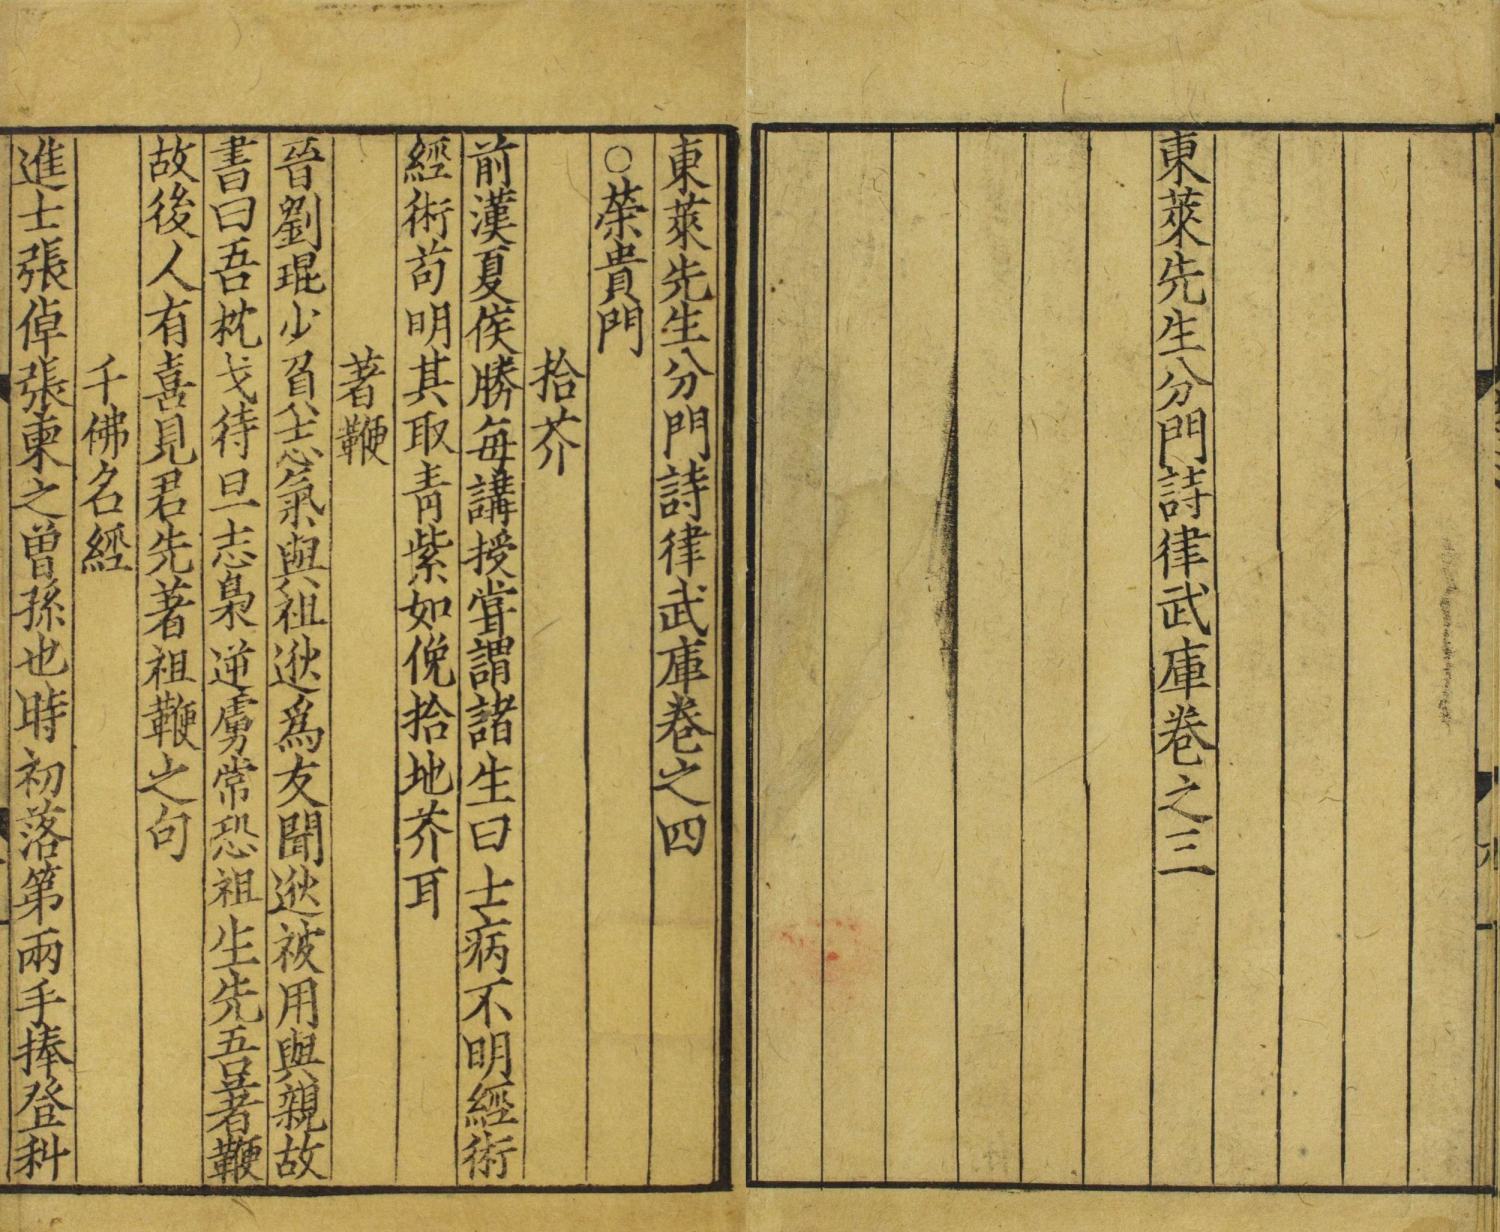 東萊先生分門詩律武庫卷之三
東萊先生分門詩律武庫卷之四
○榮貴門
拾芥
前漢夏侯勝每講授嘗謂諸生曰士病不明經術
經術苟明其取青紫如俛拾地芥耳
著鞭
晉劉琨少負志氣與祖逖爲友聞逖被用與親故
書曰吾枕戈待旦志梟逆虜常恐祖生先吾著鞭
故後人有喜見君先著祖鞭之句
千佛名經
進士張倬張柬之曾孫也時初落第兩手捧登科